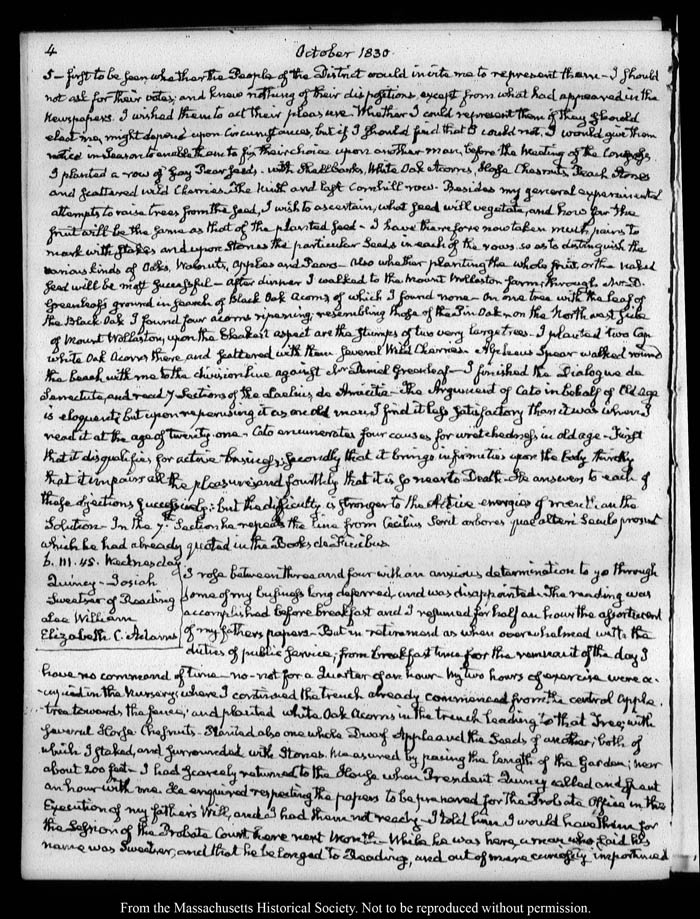 4
October 1830
5 — first to be seen whether the People of the District would invite me to represent them — I should
not ask for their votes; and knew nothing of their dispositions, except from what had appeared in the
Newspapers. I wished them to act their pleasure. Whether I could represent them if they should
elect me, might depend upon Circumstances, but if I should find that I could not, I would give them
notice in Season to enable them to fix their choice upon another man, before the Meeting of the Congress.
I planted a row of Pear seeds — with Shellbarks, White Oak Acorns, Horse Chesnuts Peach Stones
and scattered wild Cherries. The and left Cornhill row. Besides my general experimental
attempts to raise trees from the seed, I wish to ascertain, what seed will vegetate, and how far the
fruit will be the same as that of the planted seed — I have therefore now taken much pains to
mark with Stakes and upon Stones the particular Seeds in each of the rows, so as to distinguish the
various kinds of Oaks, Walnuts, Apples and Pears — Also whether planting the whole fruit, or the naked
seed will be most successful — After dinner I walked to the Mount Wollaston farm; through Mr D.
Greenleaf's ground in search of Black Oak Acorns of which I found none — On one tree with the leaf of
the Black Oak I found four acorns ripening, resembling those of the Pin Oak, on the North west side
of Mount Wollaston, upon the bleakest aspect are the stumps of two very large trees. I planted two
white Oak Acorns there and scattered with them several Wild Cherries. Spear walked round
the beach with me to the division line against Mr Daniel Greenleaf — I finished the Dialogue de
Senectute, and read 7 Sections of the Laelius de Amicitia — The Argument of Cato in behalf of Old Age
is eloquent; but upon reperusing it as an old man, I find it less satisfactory than it was when I
read it at the age of twenty-one — Cato enumerates four causes for wretchedness in old age — First
that it disqualifies for active business; Secondly that it brings infirmities upon the Body thirdly
that it impairs all the pleasures and fourthly that it is so near to Death — He answers to each of
these objections successively: but the difficulty is stronger to the Active energies of men than the
Solution — In the 7th Section he repeats the line from Cecilius Serit arbores quae alteri Seculo prosint
which he had already quoted in the Books de Finibus
6. III. 45. Wednesday
Quincy — Josiah
Sweetser of Reading
Lee William
Elizabeth C. Adams
I rose between three and four with an anxious determination to go through
some of my business long deferred, and was disappointed. The reading was
accomplished before breakfast and I resumed for half an hour the assortment
of my fathers papers — But in retirement as when overwhelmed with the
duties of public service, from breakfast time for the remnant of the day I
have no command of time — no — not for a Quarter of an hour — My two hours of exercise were oc-
-cupied in the Nursery; where I continued the trench already commenced from the central Apple
-tree towards the fence; and planted white Oak Acorns in the trench leading to that Tree; with
several Horse Chesnuts — Planted also one whole Dwarf Apple and the Seeds of another; both of
which I staked, and surrounded with Stones. Measured by pacing the length of the Garden; near
about 200 feet — I had scarcely returned to the House when President Quincy called and spent
an hour with me. He enquired respecting the papers to be prepared for the Probate Office in the
Execution of my father's Will, and I had them not ready — I told him I would have them for
the Session of the Probate Court here next Month — While he was here, a man who said his
name was Sweetser, and that he belonged to Reading, and out of mere curiosity importuned
From the Massachusetts Historical Society. Not to be reproduced without permission.